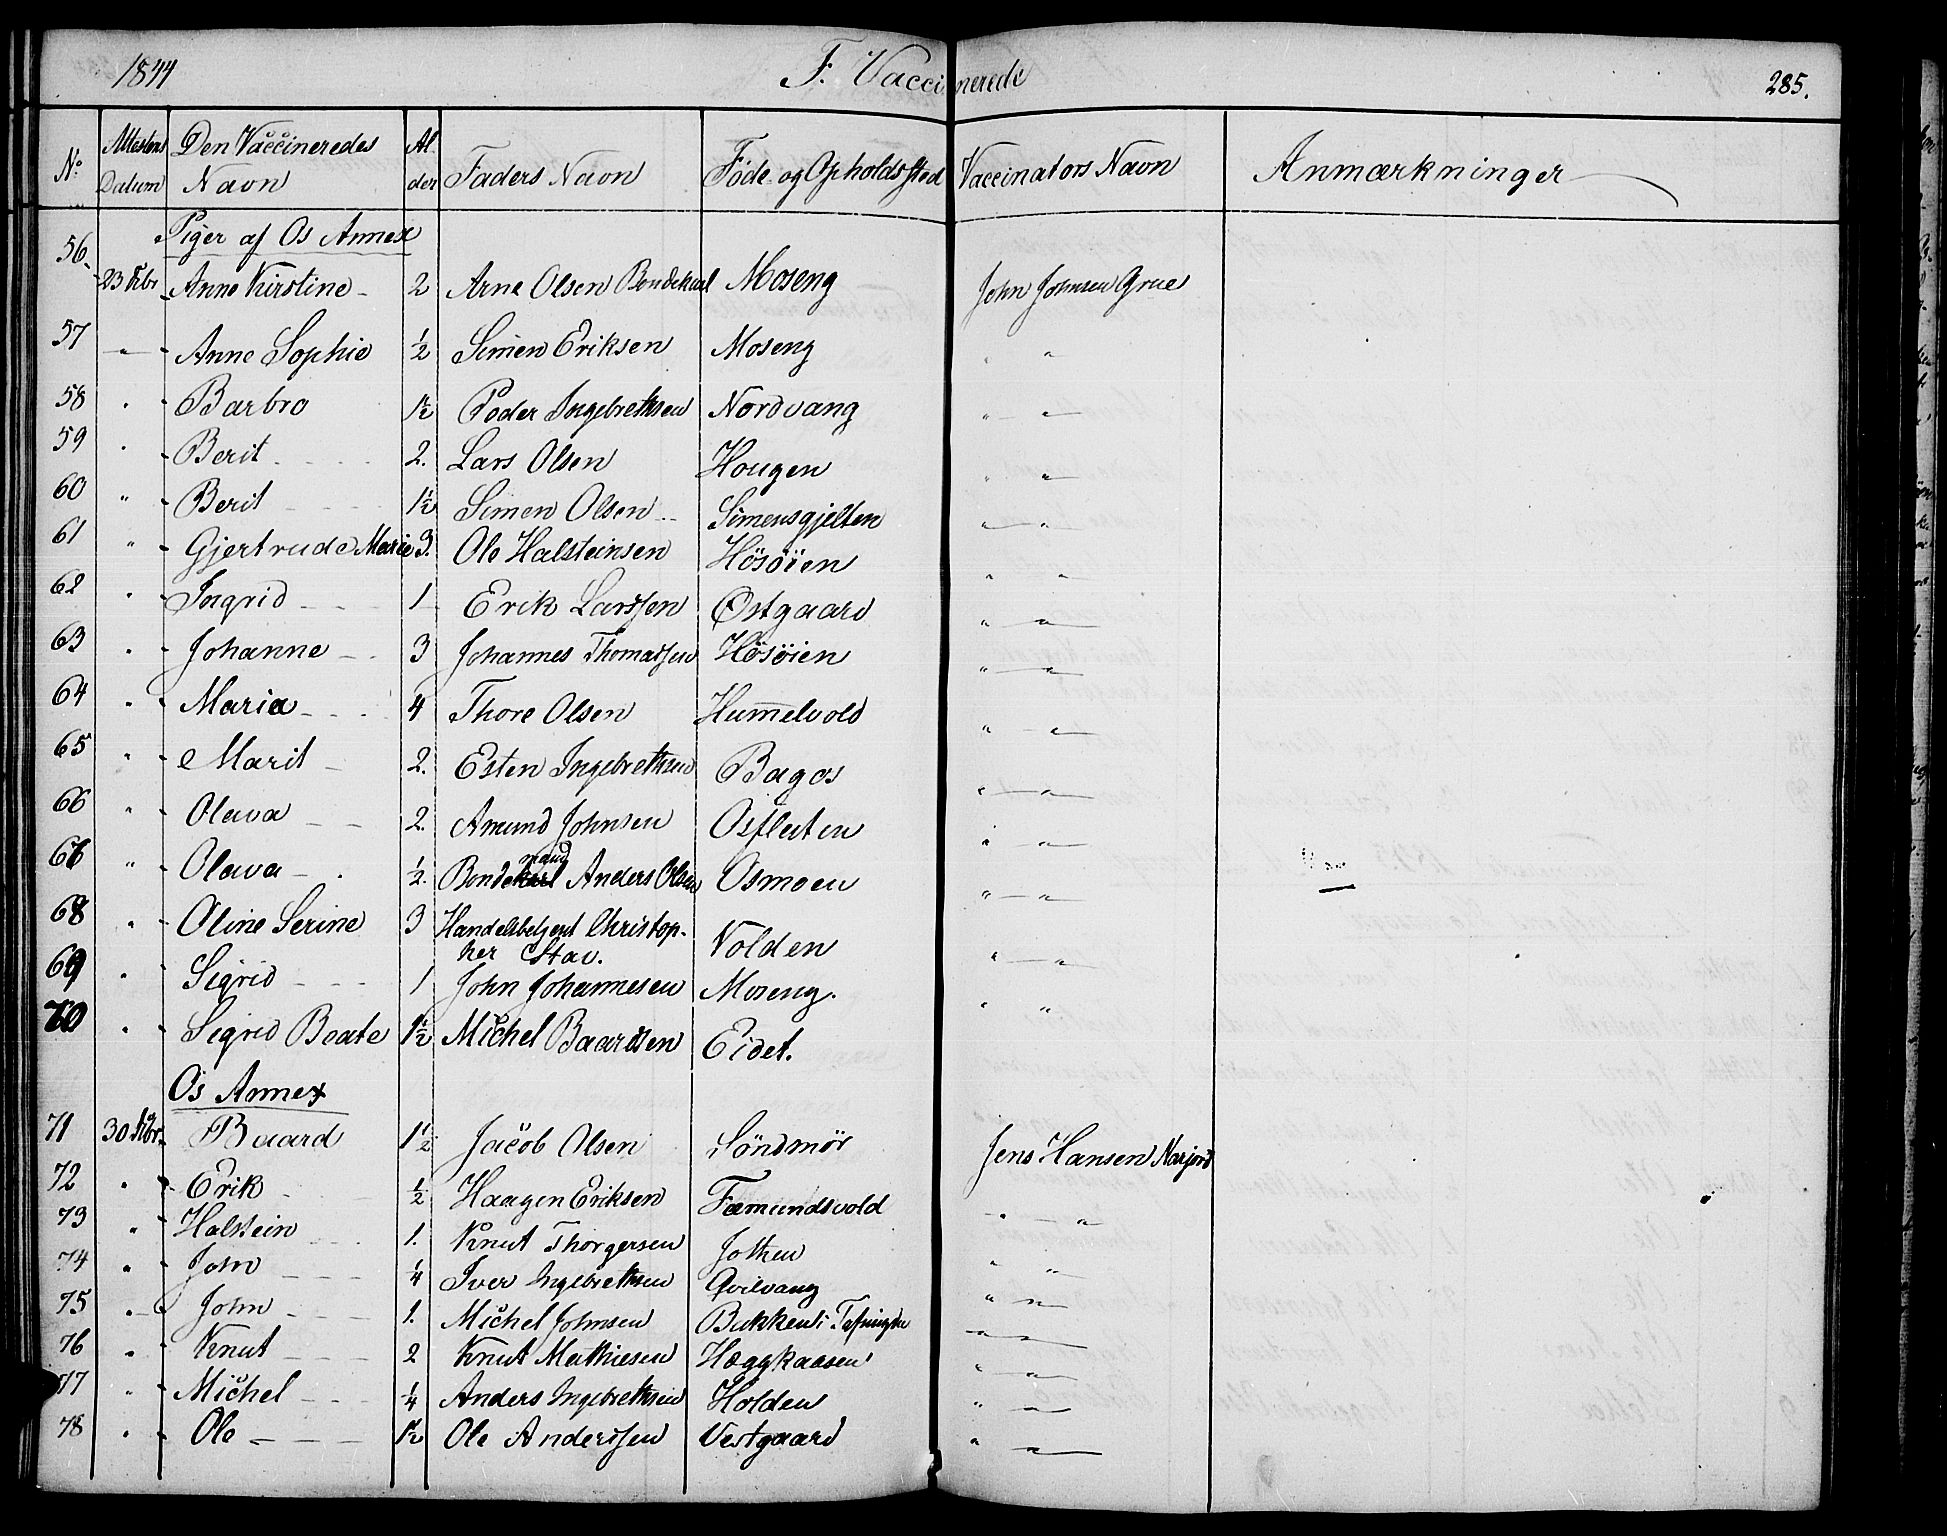 1844 F. Vaccinerede 285.
No. Attestens Datum Den Vaccineredes Navn Alder Faders Navn Føde og Opholdssted Vaccinators Navn Anmærkninger
Piger af Os Annex
56. 23 Anne Kirstine 2 Arne Olsen Bondekarl Moseng John Johnsen Grue
57 " Anne Sophie ½ Simen Eriksen Moseng " "
58 " Barbro 1½ Peder Ingebrethsen Nordvang " "
59 " Berit 2. Lars Olsen Hougen " "
60 " Berit 1½ Simen Olsen Simensgjelten " "
61 " Gjertrude Marie 3. Ole Halsteinsen Hösöien " "
62 " Ingrid 1 Erik Larssen Østgaard " "
63 " Johanne 3 Johannes Thomassen Hösöien " "
64 " Maria 4 Thore Olsen Hum̅elvold " "
65 " Marit 2. Esten Ingebrethsen Bagos " "
66 " Olava 2. Amund Johnsen Osfloten " "
67 " Olava ½. Bondemand Anders Olsen Osmoen " "
68 " Oline Serine 3 Handelsbetjent Christop-
her Stav. Volden " "
69 " Sigrid 1 John Johannesen Moseng. " "
70 " Sigrid Beate 1½ Michel Baardsen Eidet.
Os Annex
71 30 Baard 1½ Jacob Olsen Söndmör Jens Hansen Narjord
72 " Erik ½ Haagen Eriksen Fæmundsvold " "
73 " Halstein 1. Knut Thorgersen Jothen " "
74 " John ¼ Iver Ingebrethsen Qvilvang " "
75 " John 1. Michel Johnsen Bakken i " "
76 " Knut 2 Knut Mathiesen Hæggkaasen " "
77 " Michel ¼ Anders Ingebrethsen Holden " "
78 " Ole 1½ Ole Anderssen Vestgaard " "